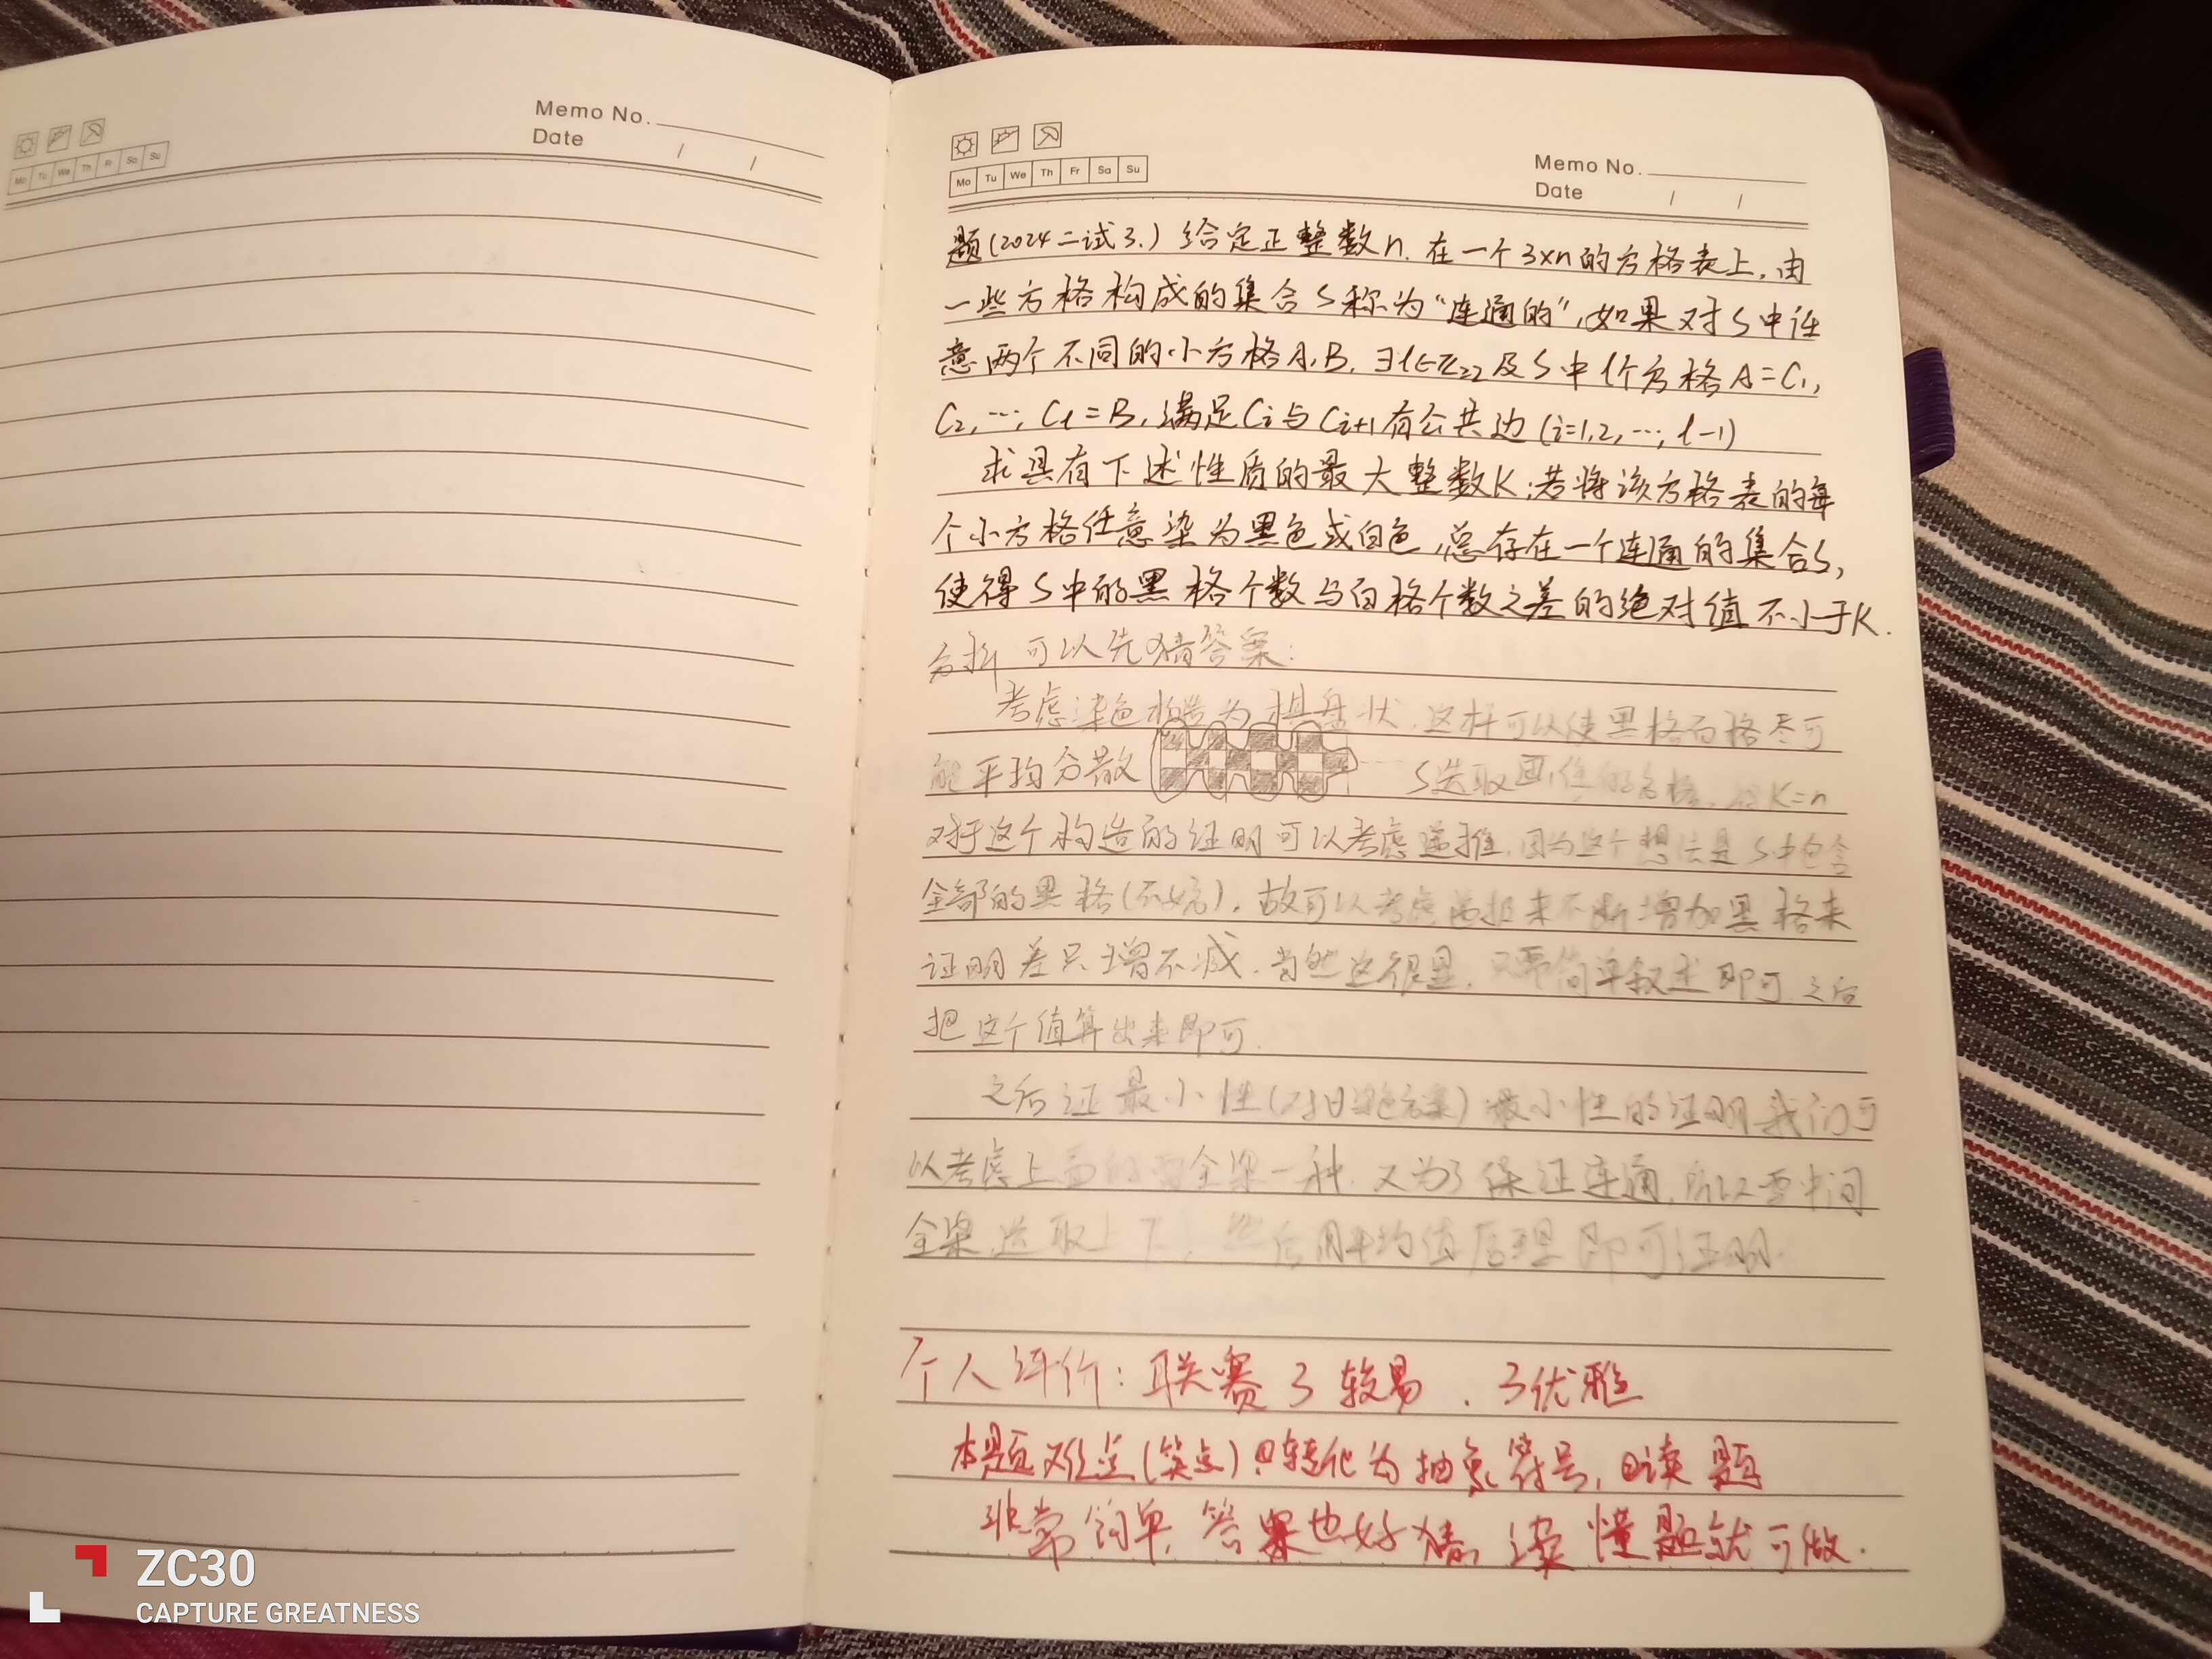 Memo No.
Date / /
Mo Tu We Th Fr Sa Su
Memo No.
Date / /
Mo Tu We Th Fr Sa Su
题(2024二试3.) 给定正整数n. 在一个3×n的方格表上, 由
一些方格构成的集合S称为“连通的”,如果对S中任
意两个不同的小方格A,B, ∃l∈Z≥2及S中l个方格A=C₁,
C₂, …, Cl=B, 满足Ci与Ci+1有公共边 (i=1,2, …, l-1)
求具有下述性质的最大整数K:若将该方格表的每
个小方格任意染为黑色或白色,总存在一个连通的集合S,
使得S中的黑格个数与白格个数之差的绝对值不小于K.
分析 可以先猜答案:
考虑染色构造为棋盘状. 这样可以使黑格白格尽可
能平均分散 S选取 的方格, K=n
对于这个构造的证明可以考虑递推, 因为这个想法是S中包含
全部的黑格(不妨), 故可以考虑 来不断增加黑格来
证明差只增不减. 当然这很显, 只需简单叙述即可. 之后
把这个值算出来即可.
之后证最小性(对 染色方案) 最小性的证明我们可
以考虑上面的 全染一种. 又为了保证连通, 所以要中间
全染, 选取上下, 然后用平均值原理即可证明.
个人评价: 联赛3较易. 3优雅
本题难点(笑点) ①转化为抽象符号, ②读题
非常简单, 答案也好猜, 读懂题就可做.
ZC30
CAPTURE GREATNESS